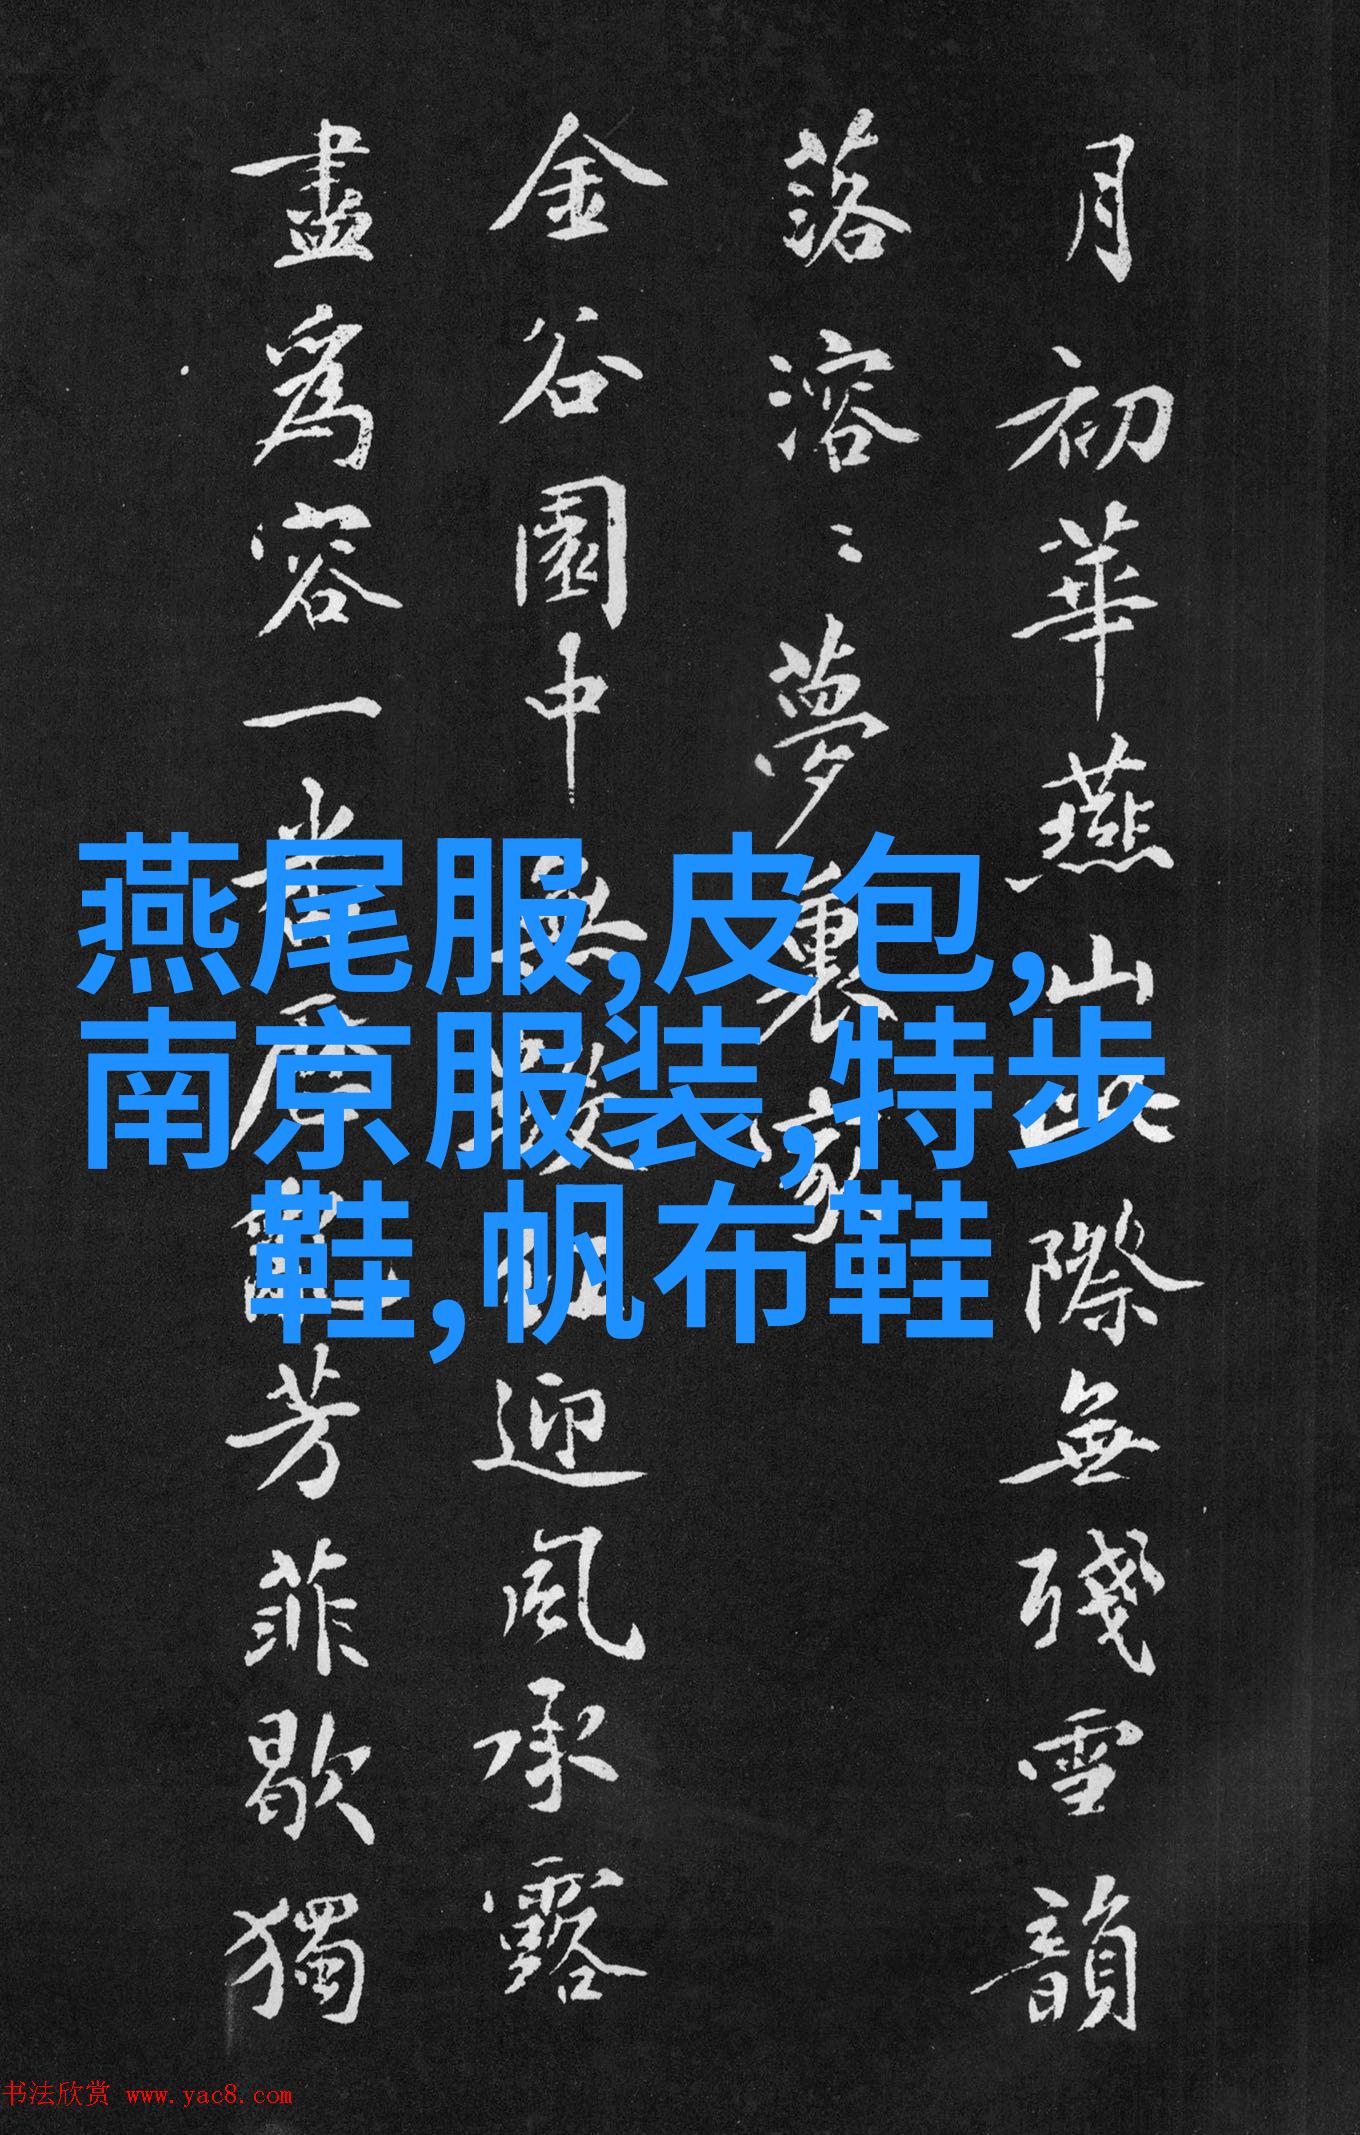 月初華燕山
際無殘雪韻
落溶〻夢裏家
金谷園中無數
迎風承露
盡為容一
芳菲歇獨
燕尾服,皮包,
南京服装,特步
鞋,帆布鞋
书法欣赏 www.yac8.com